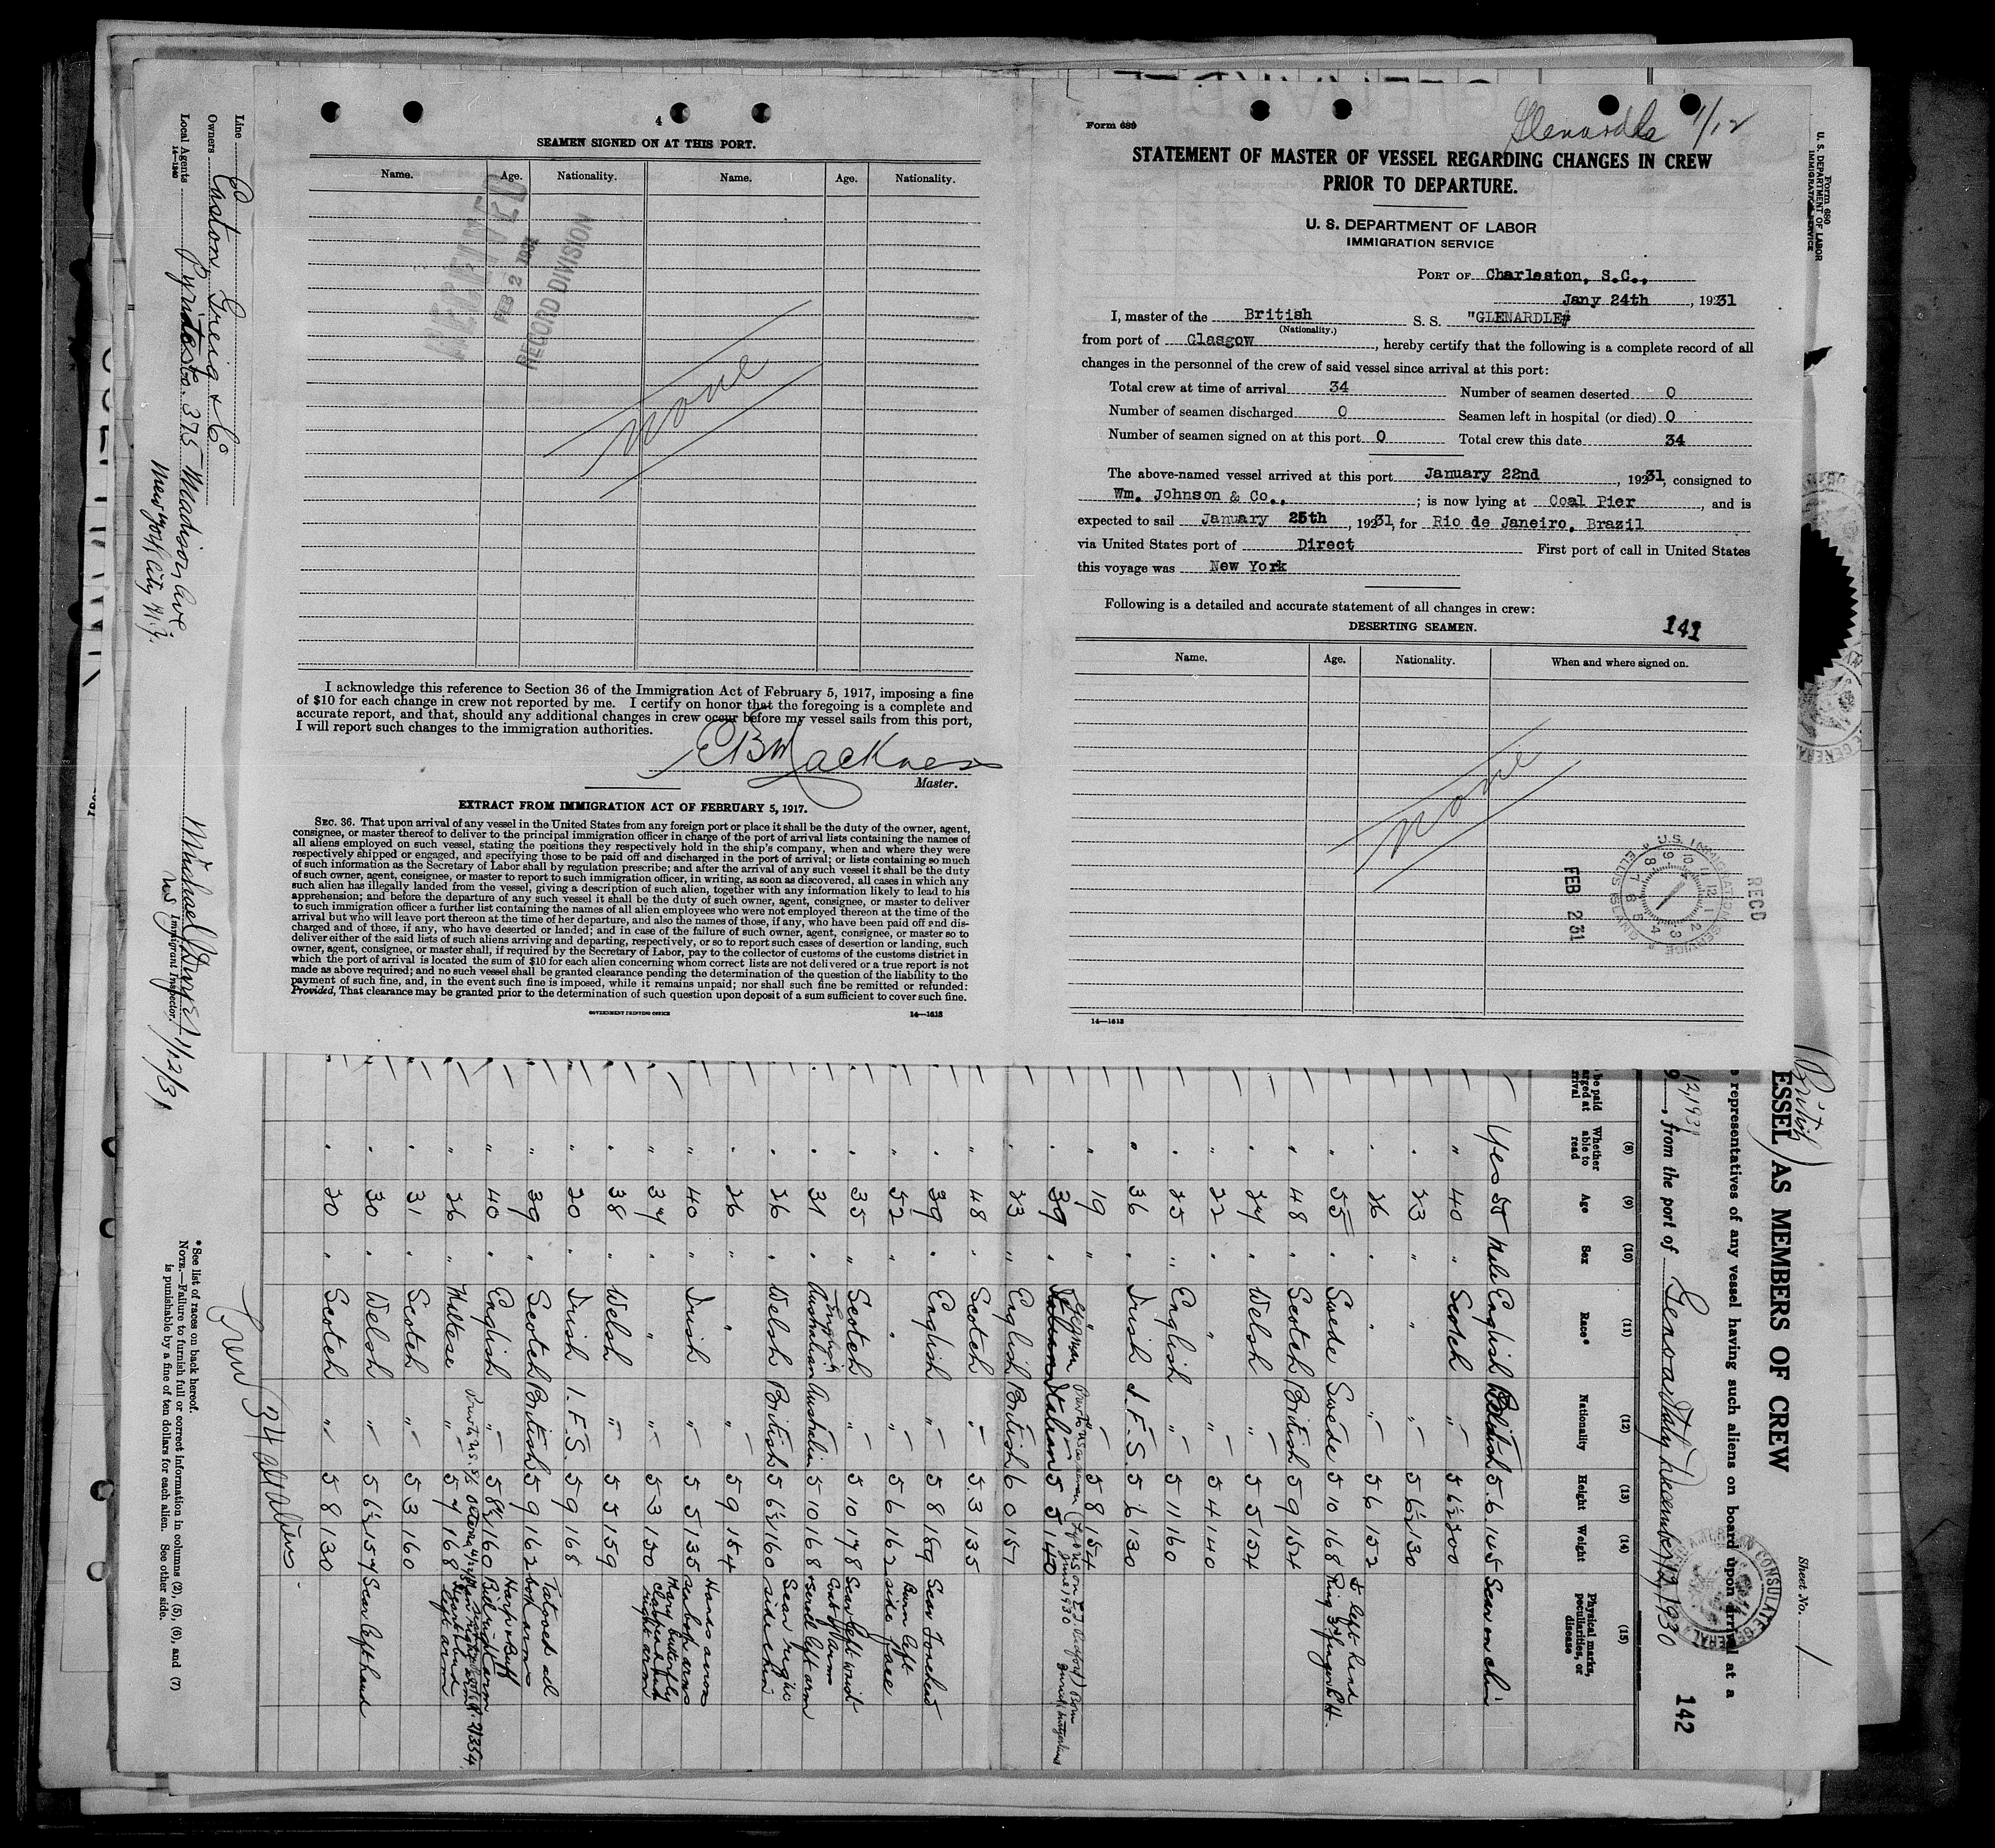 4
SEAMEN SIGNED ON AT THIS PORT.
Name. Age. Nationality. Name. Age. Nationality.
RECEIVED
FEB 2 1931
RECORD DIVISION
None
I acknowledge this reference to Section 36 of the Immigration Act of February 5, 1917, imposing a fine
of $10 for each change in crew not reported by me. I certify on honor that the foregoing is a complete and
accurate report, and that, should any additional changes in crew occur before my vessel sails from this port,
I will report such changes to the immigration authorities.
Master.
EXTRACT FROM IMMIGRATION ACT OF FEBRUARY 5, 1917.
SEC. 36. That upon arrival of any vessel in the United States from any foreign port or place it shall be the duty of the owner, agent,
consignee, or master thereof to deliver to the principal immigration officer in charge of the port of arrival lists containing the names of
all aliens employed on such vessel, stating the positions they respectively hold in the ship's company, when and where they were
respectively shipped or engaged, and specifying those to be paid off and discharged in the port of arrival; or lists containing so much
of such information as the Secretary of Labor shall by regulation prescribe; and after the arrival of any such vessel it shall be the duty
of such owner, agent, consignee, or master to report to such immigration officer, in writing, as soon as discovered, all cases in which any
such alien has illegally landed from the vessel, giving a description of such alien, together with any information likely to lead to his
apprehension; and before the departure of any such vessel it shall be the duty of such owner, agent, consignee, or master to deliver
to such immigration officer a further list containing the names of all alien employees who were not employed thereon at the time of the
arrival but who will leave port thereon at the time of her departure, and also the names of those, if any, who have been paid off and dis-
charged and of those, if any, who have deserted or landed; and in case of the failure of such owner, agent, consignee, or master so to
deliver either of the said lists of such aliens arriving and departing, respectively, or so to report such cases of desertion or landing, such
owner, agent, consignee, or master shall, if required by the Secretary of Labor, pay to the collector of customs of the customs district in
which the port of arrival is located the sum of $10 for each alien concerning whom correct lists are not delivered or a true report is not
made as above required; and no such vessel shall be granted clearance pending the determination of the question of the liability to the
payment of such fine, and, in the event such fine is imposed, while it remains unpaid; nor shall such fine be remitted or refunded:
Provided, That clearance may be granted prior to the determination of such question upon deposit of a sum sufficient to cover such fine.
GOVERNMENT PRINTING OFFICE
14—1613
Form 689
Glenardle 1/12
STATEMENT OF MASTER OF VESSEL REGARDING CHANGES IN CREW
PRIOR TO DEPARTURE.
U. S. DEPARTMENT OF LABOR
IMMIGRATION SERVICE
PORT OF Charleston, S.C.,
Jany 24th, 1931
I, master of the British S. S. "GLENARDLE"
(Nationality.)
from port of Glasgow, hereby certify that the following is a complete record of all
changes in the personnel of the crew of said vessel since arrival at this port:
Total crew at time of arrival 34 Number of seamen deserted 0
Number of seamen discharged 0 Seamen left in hospital (or died) 0
Number of seamen signed on at this port 0 Total crew this date 34
The above-named vessel arrived at this port January 22nd, 1931, consigned to
Wm. Johnson & Co.,; is now lying at Coal Pier, and is
expected to sail January 25th, 1931, for Rio de Janeiro, Brazil
via United States port of Direct First port of call in United States
this voyage was New York
Following is a detailed and accurate statement of all changes in crew:
DESERTING SEAMEN. 141
Name. Age. Nationality. When and where signed on.
None
RECD
U.S. IMMIGRATION SERVICE ELLIS ISLAND
FEB 2 31
14—1613
Form 680
U. S. DEPARTMENT OF LABOR
IMMIGRATION SERVICE
Sheet No. 1
(British
ESSEL) AS MEMBERS OF CREW
representatives of any vessel having such aliens on board upon arrival at a
142
12, 1931, from the port of Genoa Italy December 19, 1930
AMERICAN CONSULATE GENERAL
(8) Whether able to read (9) Age (10) Sex (11) Race* (12) Nationality (13) Height (14) Weight (15) Physical marks, peculiarities, or disease
Yes 55 Male English British 5 6 145 Scar on chin
" 40 " Scotch " 5 6½ 200
" 23 " " " 5 6½ 130
" 26 " " " 5 6 152
" 55 " Swede Swede 5 10 168
" 48 " Scotch British 5 9 154
" 24 " Welsh " 5 5 154
" 22 " " " 5 4 140
" 25 " English " 5 11 160
" 36 " Irish I.F.S. 5 6 130
" 19 " " " 5 8 154
" 39 " German Italian 5 5 140
" 23 " English British 6 0 151
" 48 " Scotch " 5 3 135
" 39 " English " 5 8 189 Scar Forehead
" 52 " " " 5 6 162 Burn left side face
" 35 " Scotch " 5 10 178 Scar left wrist
" 31 " English Australian Australia 5 10 168
" 26 " Welsh British 5 6½ 160 Scar right side chin
" 26 " " " 5 9 154
" 40 " Irish " 5 5 135
" 34 " " " 5 3 150
" 38 " Welsh " 5 5 159
" 20 " Irish I.F.S. 5 9 168
" 39 " Scotch British 5 9 162 Tatooed all both arms
" 40 " English " 5 8½ 160
" 26 " Maltese " 5 4 168
" 31 " Scotch " 5 3 160
" 30 " Welsh " 5 6½ 154 Scar left hand
" 20 " Scotch " 5 8 130
Crew 34 all aliens.
*See list of races on back hereof.
NOTE.—Failure to furnish full or correct information in columns (2), (5), (6), and (7)
is punishable by a fine of ten dollars for each alien. See other side.
Line
Owners Caston Greig & Co
Local Agents Pyrites Co. 375 Maadison Ave.
New York City N.Y.
14—1240
Immigrant Inspector.
1/12/31